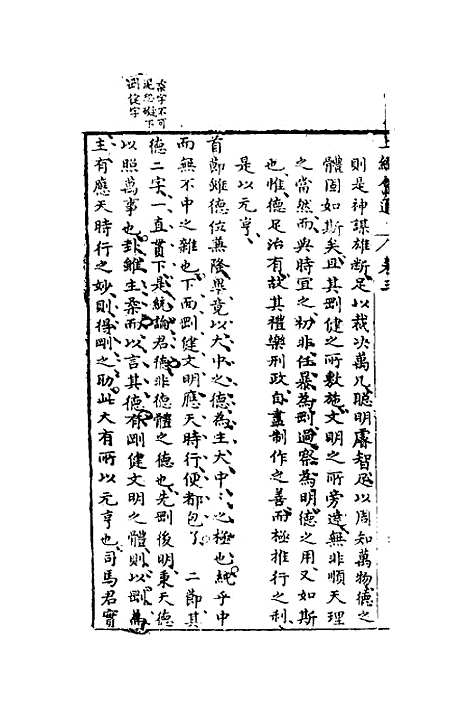 則是神謀雄斷足以裁決萬几聰明睿智足以周知萬物德之
體固如斯矣且其剛健之所敷施文明之所旁達無非順天理
之當然而與時宜之初非任暴為剛過察為明德之用又如斯
也惟德足治有故其禮樂刑政自盡制作之善而極推行之利
是以元亨
首節雖德位兼隆畢竟以大中之德為主大中之極也純乎中
而無不中之雜也下面剛健文明應天時行便都包了 二節其
德二字一直貫下是統論君德非德體之德也先剛後明東天德
以照萬事也卦雖主柔而以言其德有剛健文明之體則以剛為
主有應天時行之妙則得剛之助此大有所以元亨也司馬君實
字不可
泥然從下
剛健字